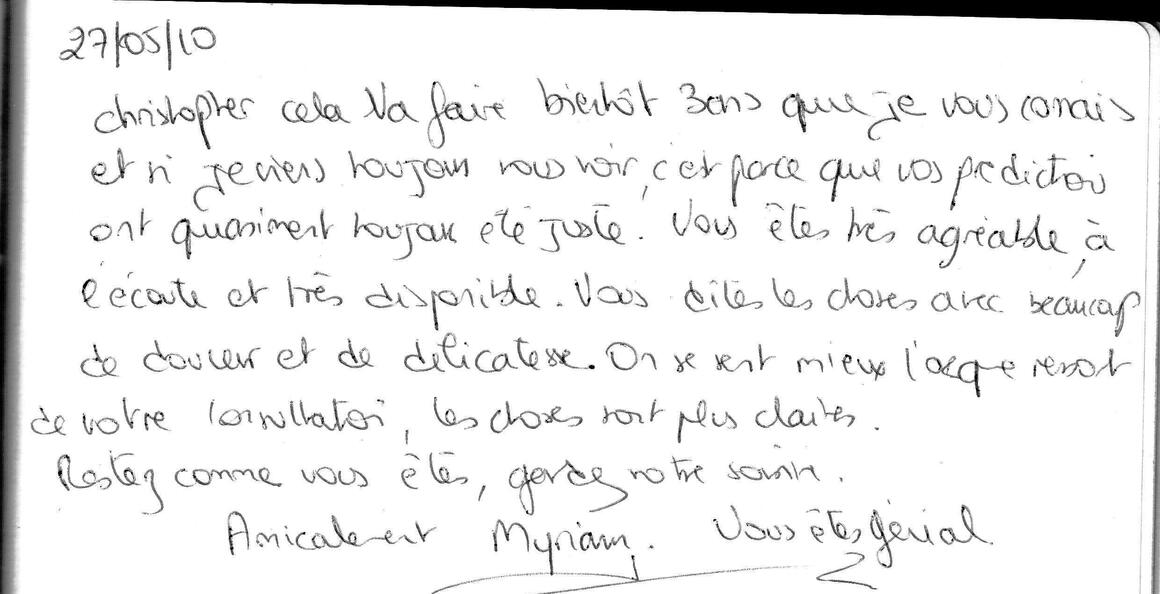 27/05/10
christopher cela va faire bientôt 3ans que je vous connais
et si je viens toujours vous voir, c'est parce que vos prédictions
ont quasiment toujours été juste. Vous êtes très agréable, à
l'écoute et très disponible. Vous dites les choses avec beaucoup
de douceur et de délicatesse. On se sent mieux lorsque ressort
de votre consultation, les choses sont plus claires.
Restez comme vous êtes, gardez votre sourire.
Amicalement Myriam. Vous êtes génial